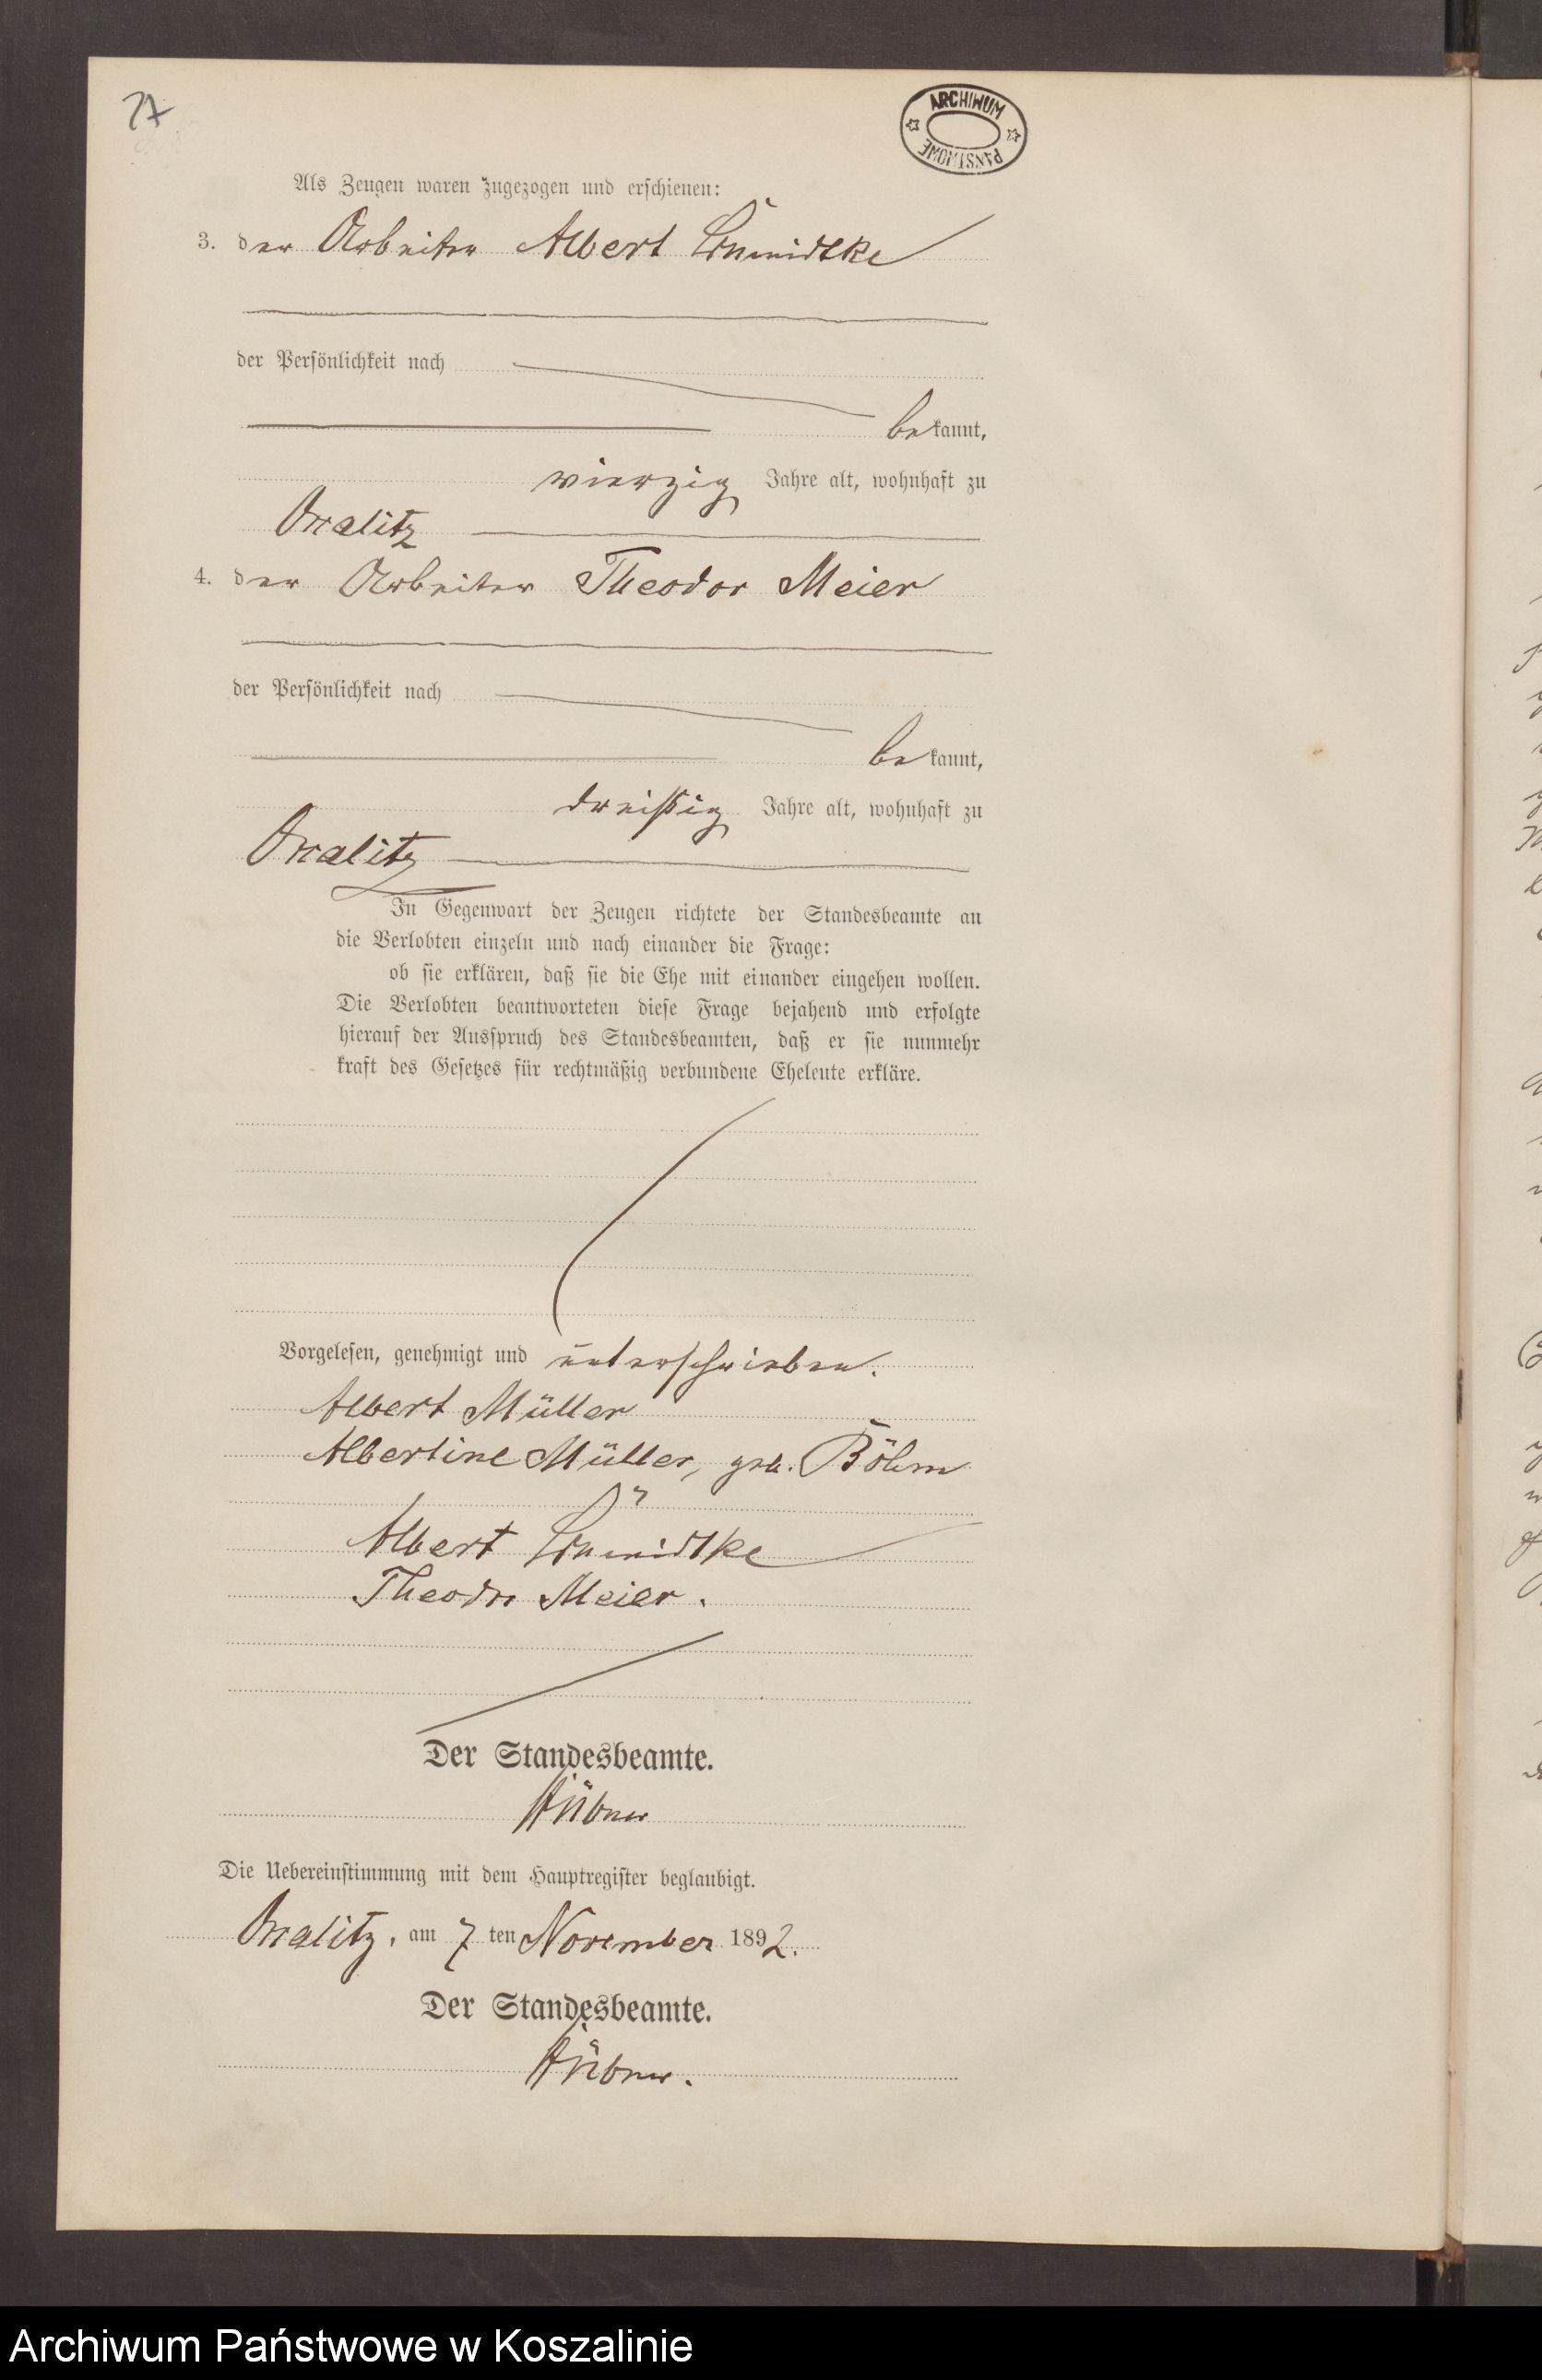 77
ARCHIWUM
PAŃSTWOWE
Als Zeugen waren zugezogen und erschienen:
3. der Arbeiter Albert Schmidtke
der Persönlichkeit nach
bekannt,
vierzig Jahre alt, wohnhaft zu
4. der Arbeiter Theodor Meier
der Persönlichkeit nach
bekannt,
dreißig Jahre alt, wohnhaft zu
In Gegenwart der Zeugen richtete der Standesbeamte an
die Verlobten einzeln und nach einander die Frage:
ob sie erklären, daß sie die Ehe mit einander eingehen wollen.
Die Verlobten beantworteten diese Frage bejahend und erfolgte
hierauf der Ausspruch des Standesbeamten, daß er sie nunmehr
kraft des Gesetzes für rechtmäßig verbundene Eheleute erkläre.
Vorgelesen, genehmigt und unterschrieben.
Albert Müller
Albertine Müller, geb. Böhm
Albert Schmidtke
Theodor Meier.
Der Standesbeamte.
Hübner
Die Uebereinstimmung mit dem Hauptregister beglaubigt.
am 7 ten November 1892.
Der Standesbeamte.
Hübner.
Archiwum Państwowe w Koszalinie